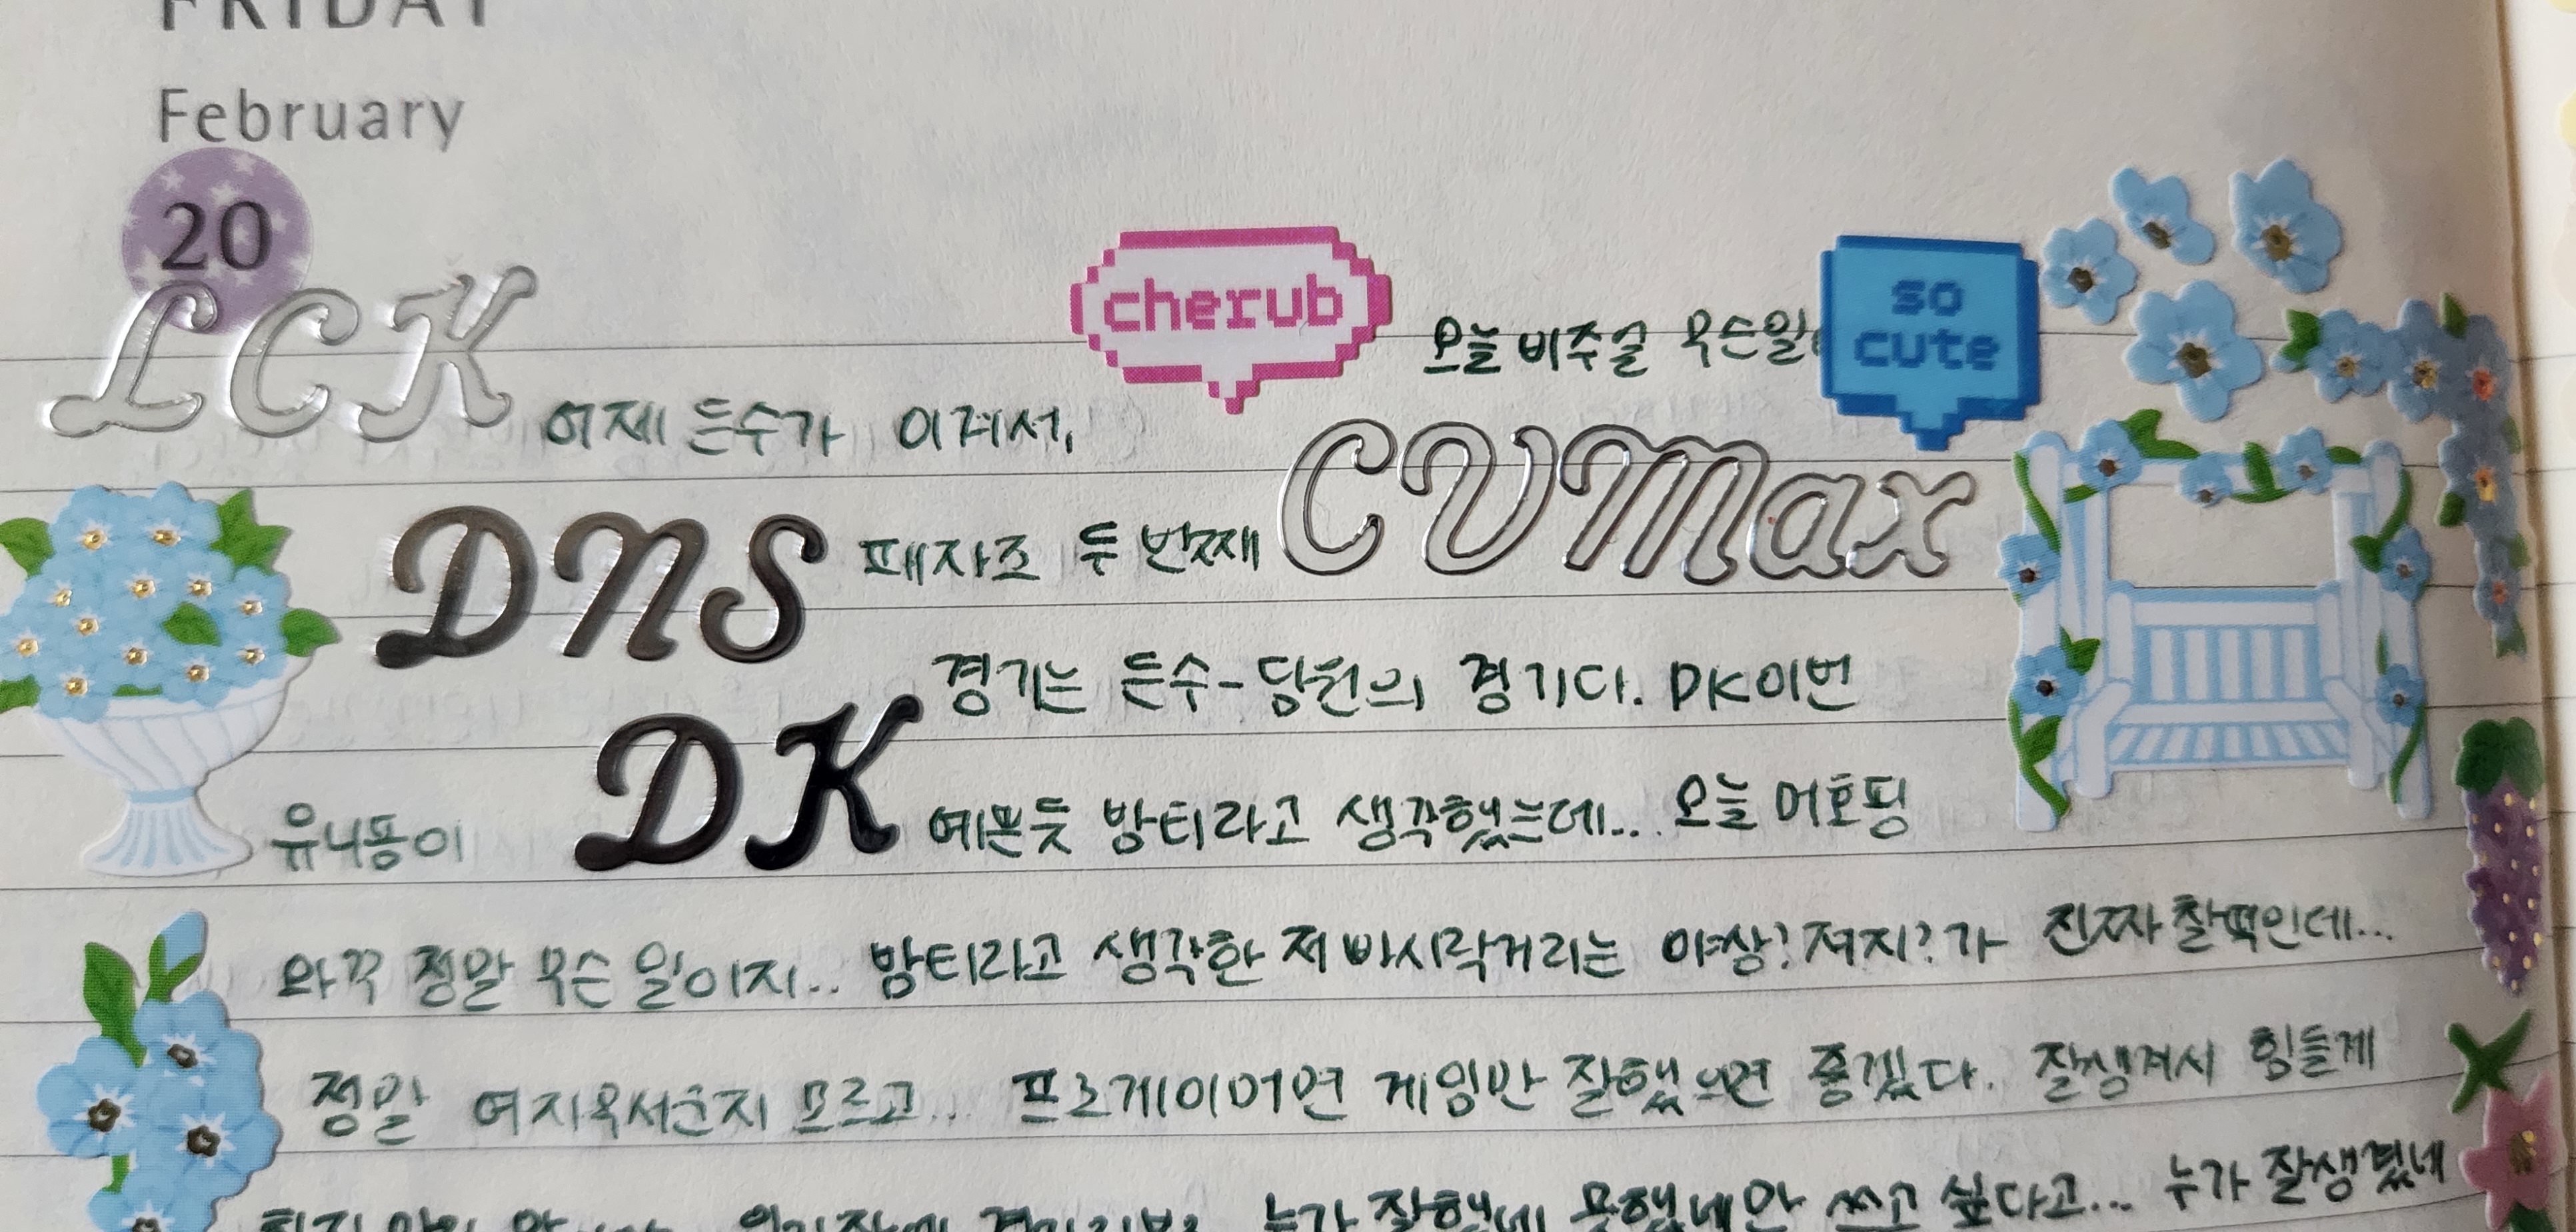 FRIDAY
February
20
cherub
so
cute
오늘 비주얼 무슨일
LCK 어제 든수가 이겨서,
DNS 패자조 두 번째 CVMax
경기는 든수-당원의 경기다. DK이번
유니폼이 DK 예쁜듯 방티라고 생각했는데... 오늘 머호핑
와꾸 정말 무슨 일이지.. 방티라고 생각한 저 바시락거리는 야상? 져지?가 진짜 찰떡인데...
정말 모르고... 프로게이머면 게임만 잘했으면 좋겠다. 잘생겨서 힘들게
누가 잘했네 못했네만 쓰고 싶다고... 누가 잘생겼네